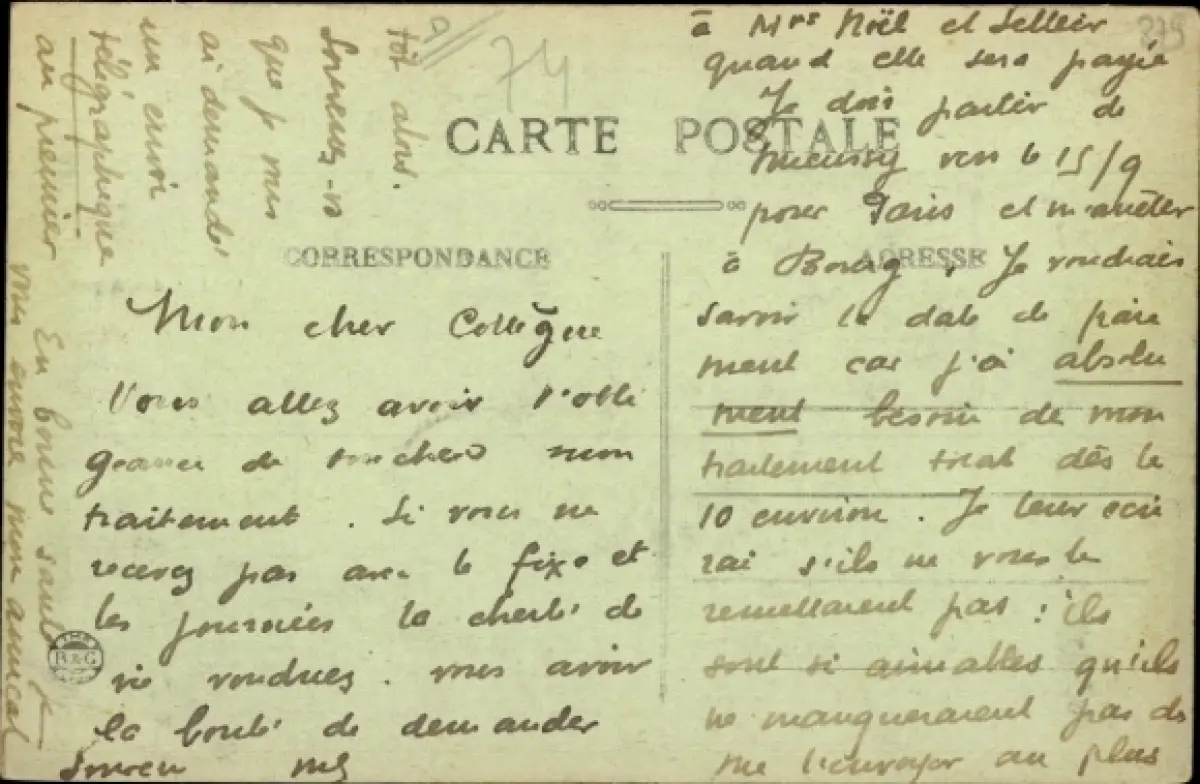 CARTE POSTALE
CORRESPONDANCE
ADRESSE
74
Mon cher Collègue
Vous allez avoir l'obli
geance de toucher mon
traitement. Si vous ne
recevez pas avec le fixe et
les journées la cherté de
vie voudriez vous avoir
la bonté de demander
à Mrs Noël et Sellier
quand elle sera payée
Je dois partir de
vers le 15/9
pour Paris et m'arrêter
à Bourg. Je voudrais
savoir la date de paie
ment car j'ai absolu
ment besoin de mon
traitement total dès le
10 environ. Je leur écri
rai s'ils ne vous le
remettaient pas : ils
sont si aimables qu'ils
ne manqueraient pas de
me l'envoyer au plus
tôt alors.
Souvenez-vs
que je vous
ai demandé
un envoi
télégraphique
au premier
En bonne santé je
vous envoie mon amical
B&G